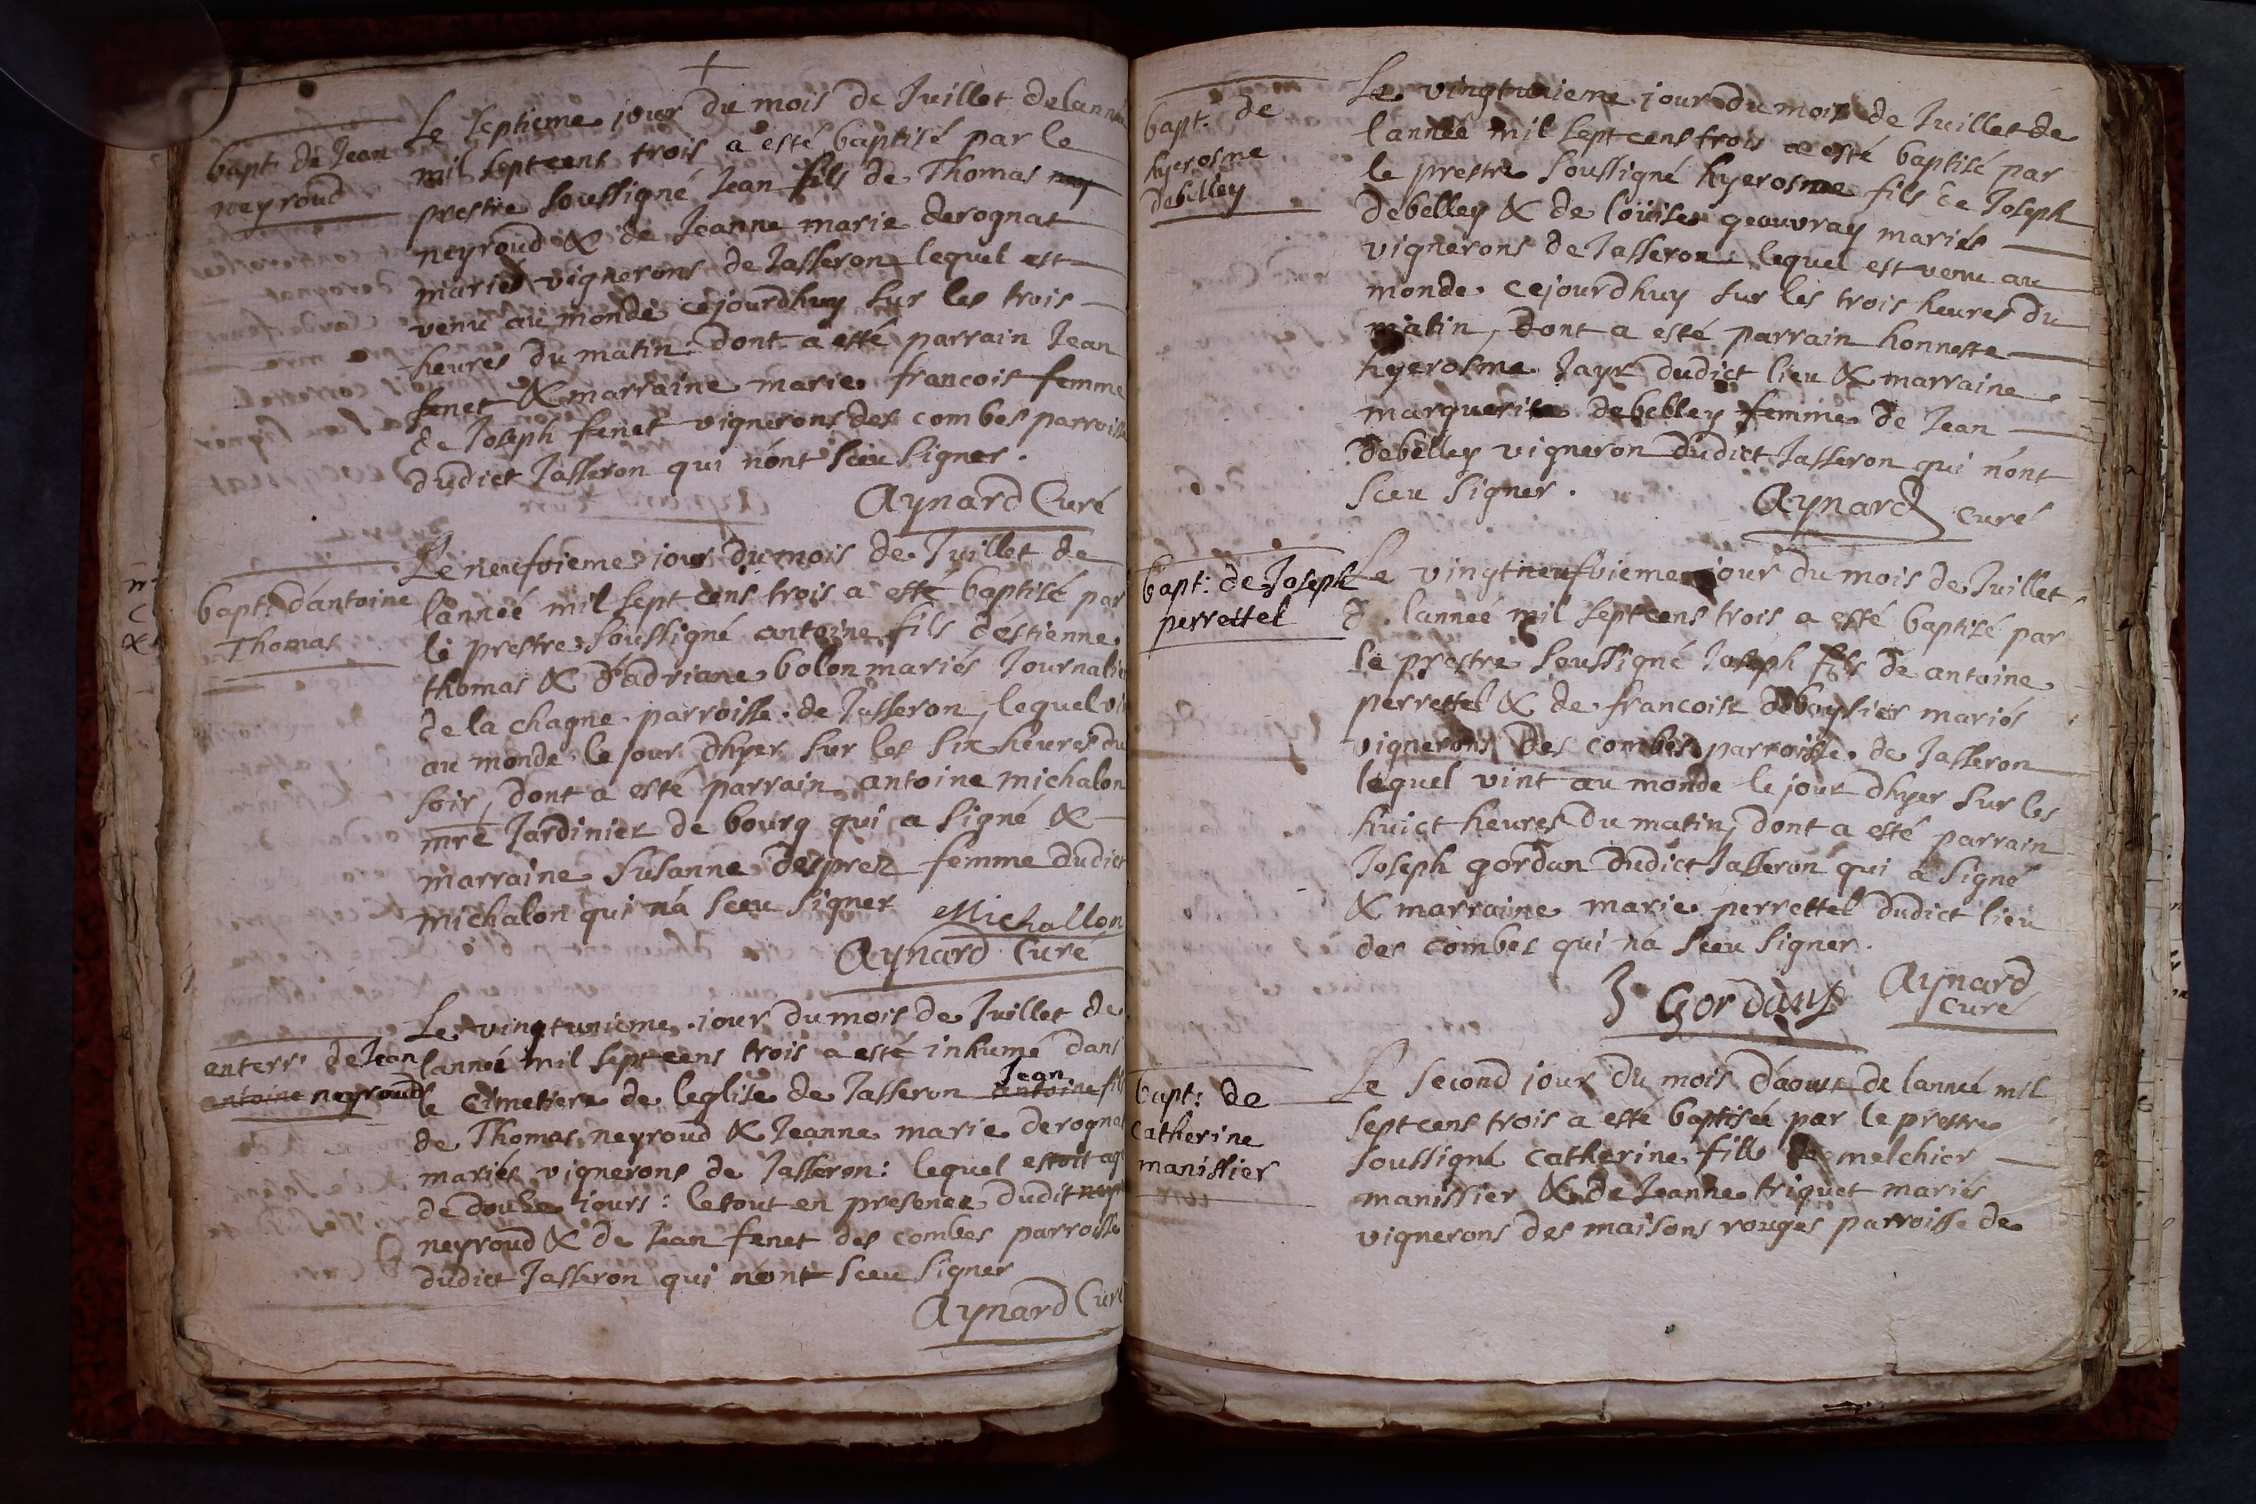 bapt: de Jean
neyroud
Le septieme jour du mois de Juillet de lannée
mil sept cens trois a esté baptisé par le
prestre soussigné Jean fils de Thomas ney
neyroud & de Jeanne marie derognat
mariés vignerons de Jasseron lequel est
venu au monde cejourdhuy sur les trois
heures du matin dont a esté parrain Jean
fenet & marraine marie francois femme
de Joseph fenet vignerons des combes parroisse
dudict Jasseron qui n'ont sceu signer.
Aynard Curé
bapt: d'antoine
Thomas
Le neufvieme jour du mois de Juillet de
lanneé mil sept cens trois a esté baptisé par
le prestre soussigné antoine fils d'éstienne
thomas & d'adriane bolon mariés Journalie
de la chagne parroisse de Jasseron, lequel vi
au monde le jour dhyer sur les six heures du
soir, dont a esté parrain antoine michalon
mre Jardinier de bourg qui a signé &
marraine susanne desprez femme dudict
michalon qui n'a sceu signer
Michallon
Aynard Curé
enterr: de Jean
antoine neyroud
Le vingtunieme jour du mois de Juillet de
lanneé mil sept cens trois a esté inhumé dans
le cimetiere de leglise de Jasseron antoine Jean fils
de Thomas neyroud & Jeanne marie derognat
mariés vignerons de Jasseron: lequel estoit agé
de douze jours: le tout en presence dudit neyr
neyroud & de Jean fenet des combes parroisse
dudict Jasseron qui n'ont sceu signer
Aynard Curé
bapt: de
hyerosme
debelley
Le vingtunieme jour du mois de Juillet de
lanneé mil sept cens trois a esté baptisé par
le prestre soussigné hyerosme fils de Joseph
debelley & de loüise geauvray mariés
vignerons de Jasseron lequel est venu au
monde cejourdhuy sur les trois heures du
matin, dont a esté parrain honneste
hyerosme Jayr dudict lieu & marraine
marguerite debelley femme de Jean
debelley vigneron dudict Jasseron qui n'ont
sceu signer.
Aynard curé
bapt: de Joseph
perrettel
Le vingtneufvieme jour du mois de Juillet
de lanneé mil sept cens trois a esté baptisé par
le prestre soussigné Joseph fils de antoine
perrettel & de francoise deboysier mariés
vignerons des combes parroisse de Jasseron
lequel vint au monde le jour dhyer sur les
huict heures du matin, dont a esté parrain
Joseph gordan dudict Jasseron qui a signé
& marraine marie perrettel dudict lieu
des combes qui n'a sceu signer.
J Gordan
Aynard
Curé
bapt: de
Catherine
manissier
Le second jour du mois d'aoust de lanneé mil
sept cens trois a esté baptisée par le prestre
soussigné catherine fille de melchior
manissier & de Jeanne triquet mariés
vignerons des maisons rouges parroisse de